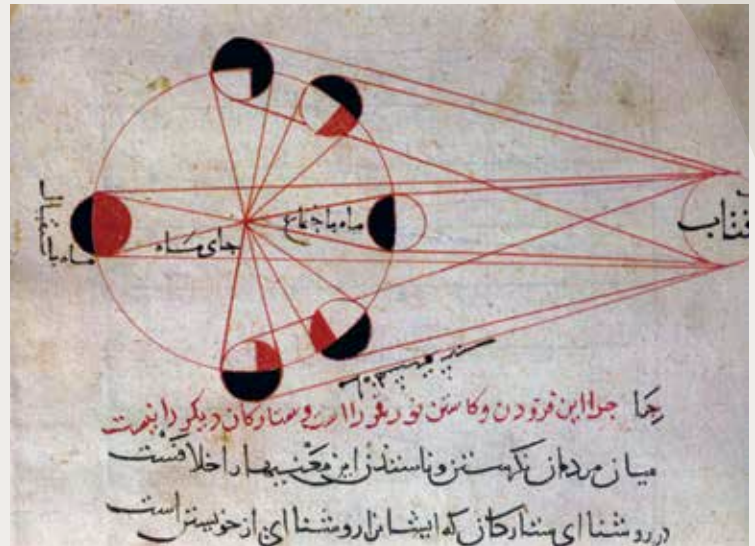 ماه باستقبال
جای ماه
ماه باجتماع
فتاب
جرا این فزودن وکاستن نور قمر را است و ستارکان دیکر را نیست
میان مردمان نکرستن این معنیها را خلافست
در روشنا ای ستارکان که ایشانرا روشنا ای از خویشتن است